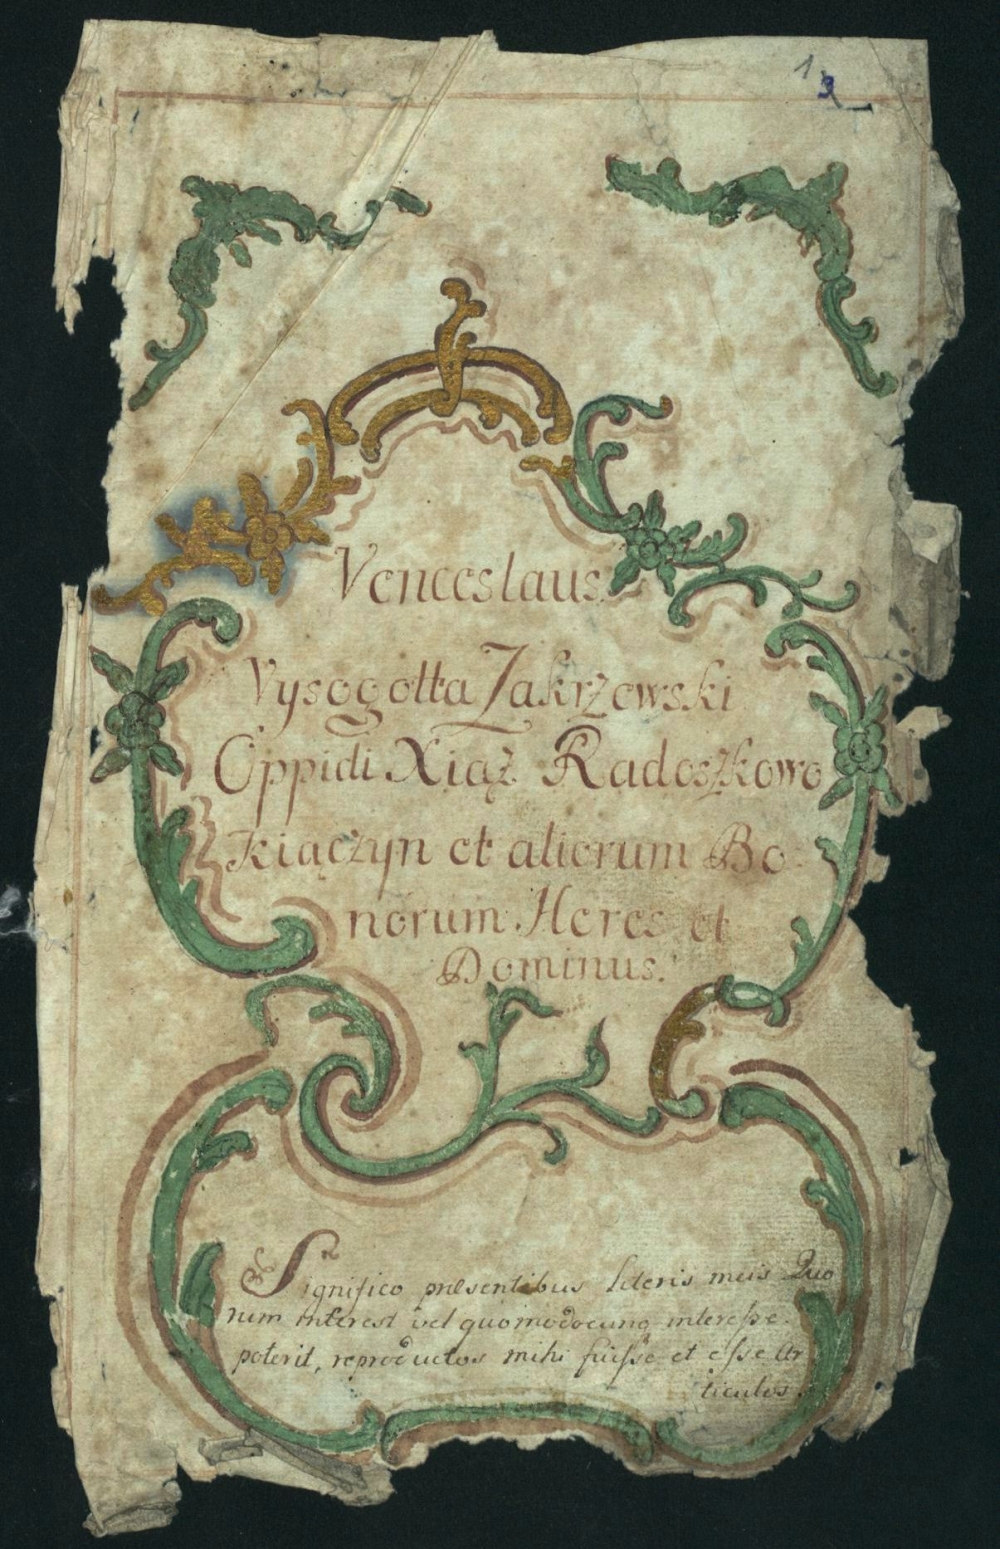 1
Venceslaus
Vysogotta Zakrzewski
Oppidi Xiąż Radoszkowo
Kiączyn et aliorum Bo-
norum Heres et
Dominus.
Significo præsentibus literis meis Quo
rum interest vel quomodocunq interesse
poterit, reproductos mihi fuisse et esse Ar
ticulos.